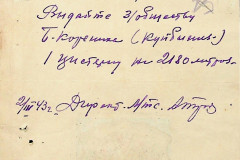 Выдайте з/обществу
Б-Корешка (Куйбышев-)
1 цистерну на 2180 литров.
2/III 43г. Директ. Мтс.